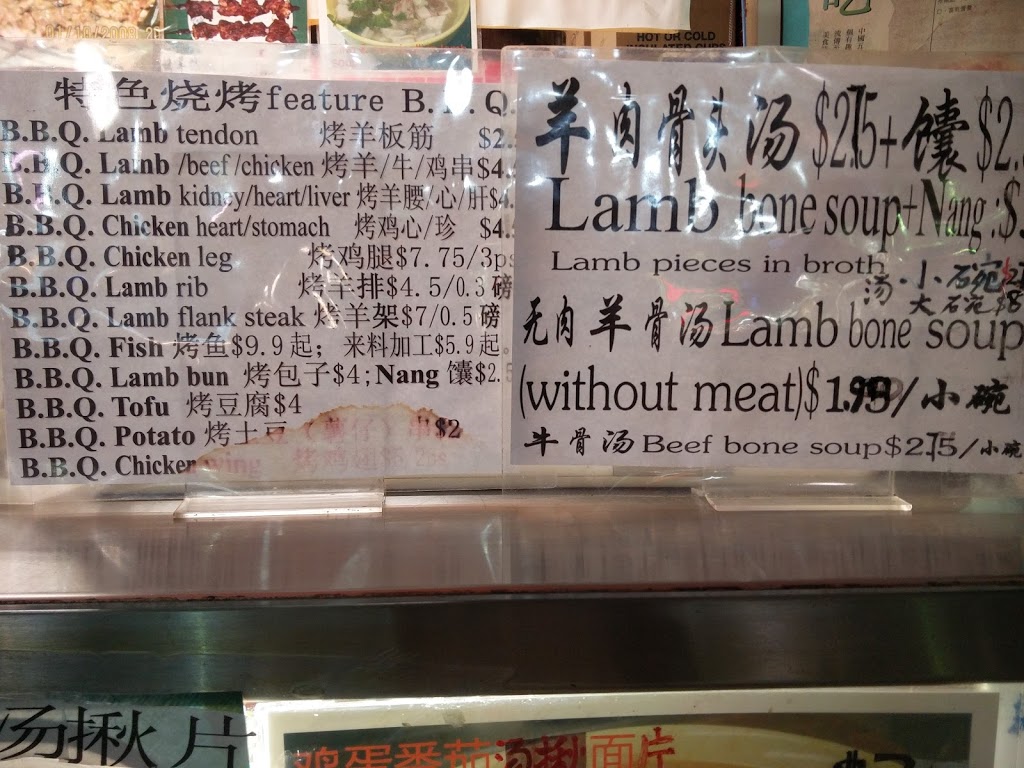 01/10/2008
HOT OR COLD
INSULATED CUPS
吃
特色烧烤feature B.B.Q.
B.B.Q. Lamb tendon 烤羊板筋 $2.
B.B.Q. Lamb /beef /chicken 烤羊/牛/鸡串$4.
B.B.Q. Lamb kidney/heart/liver 烤羊腰/心/肝$4.
B.B.Q. Chicken heart/stomach 烤鸡心/珍 $4.
B.B.Q. Chicken leg 烤鸡腿$7.75/3ps
B.B.Q. Lamb rib 烤羊排$4.5/0.3磅
B.B.Q. Lamb flank steak 烤羊架$7/0.5磅
B.B.Q. Fish 烤鱼$9.9起；来料加工$5.9起
B.B.Q. Lamb bun 烤包子$4;Nang 馕$2.5
B.B.Q. Tofu 烤豆腐$4
B.B.Q. Potato 烤土豆（薯仔）串$2
B.B.Q. Chicken wing 烤鸡翅
羊肉骨头汤$2.75+馕$2.
Lamb bone soup+Nang:$
Lamb pieces in broth
汤·小碗
大碗$8
无肉羊骨汤Lamb bone soup
(without meat)$1.99/小碗
牛骨汤Beef bone soup$2.75/小碗
汤揪片
鸡蛋番茄汤揪面片